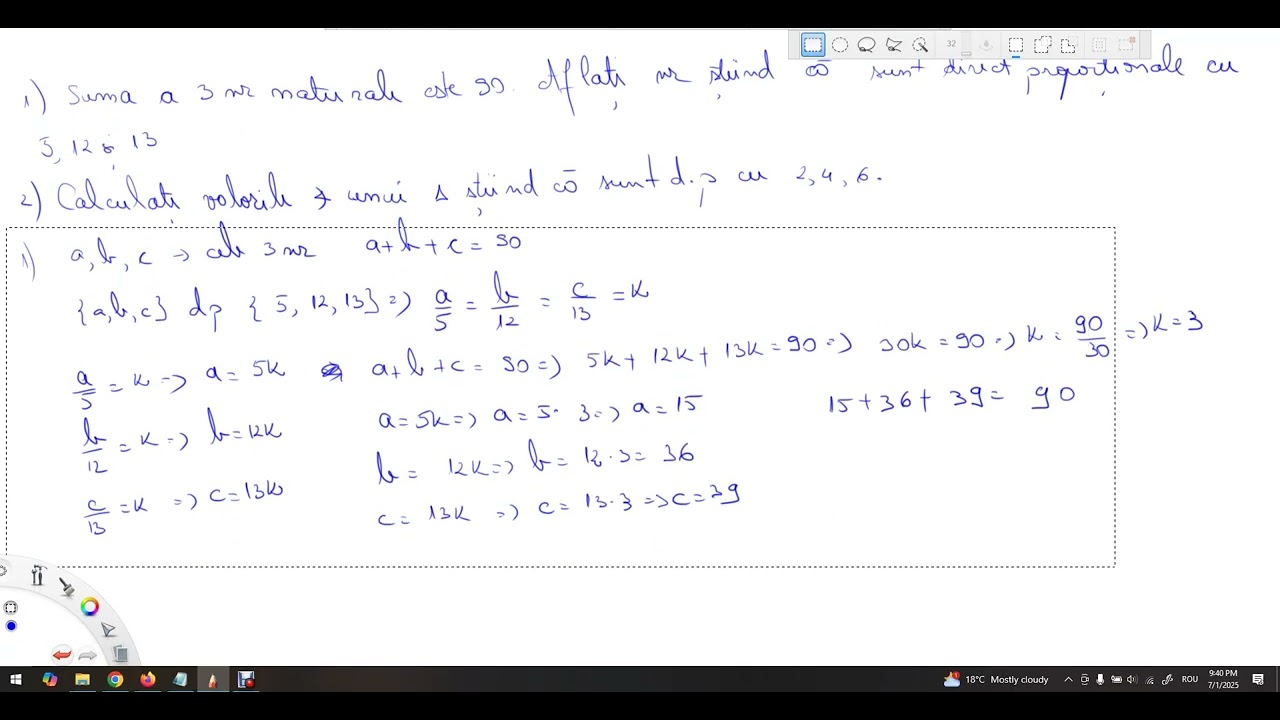 32
1) Suma a 3 nr naturale este 90. Aflați nr știind că sunt direct proporționale cu
5, 12 și 13
2) Calculați valorile ∢ unui Δ știind că sunt d.p cu 2, 4, 6.
1) a, b, c → cele 3 nr a+b+c = 90
{a,b,c} dp {5, 12, 13} => a/5 = b/12 = c/13 = K
a/5 = K => a = 5K a+b+c = 90 => 5K + 12K + 13K = 90 => 30K = 90 => K = 90/30 => K = 3
b/12 = K => b = 12K a = 5K => a = 5 · 3 => a = 15 15 + 36 + 39 = 90
b = 12K => b = 12 · 3 = 36
c/13 = K => c = 13K c = 13K => c = 13 · 3 => c = 39
18°C Mostly cloudy ROU 9:40 PM
7/1/2025